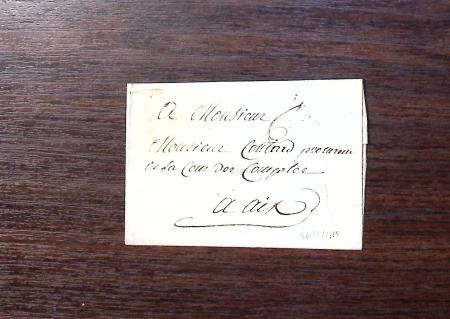 A Monsieur
Monsieur Coutard procureur
en La Cour des Comptes
a aix